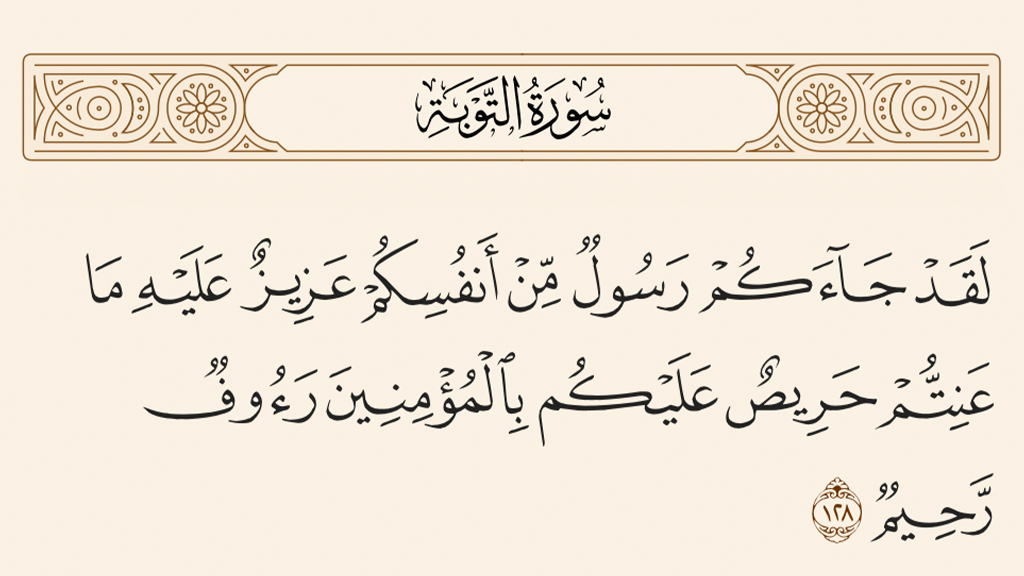 سُورَةُ التَّوْبَةِ
لَقَدْ جَآءَكُمْ رَسُولٌ مِّنْ أَنفُسِكُمْ عَزِيزٌ عَلَيْهِ مَا
عَنِتُّمْ حَرِيصٌ عَلَيْكُم بِٱلْمُؤْمِنِينَ رَءُوفٌ
رَّحِيمٌ ١٢٨